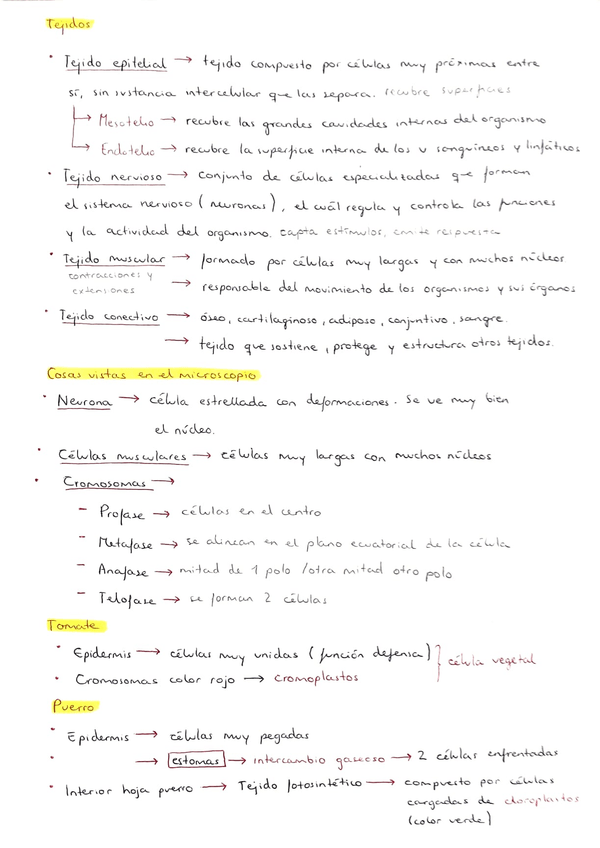 Tejidos
· Tejido epitelial → tejido compuesto por células muy próximas entre
sí, sin sustancia intercelular que las separa. recubre superficies
→ Mesotelio → recubre las grandes cavidades internas del organismo
→ Endotelio → recubre la superficie interna de los v sanguíneos y linfáticos
· Tejido nervioso → conjunto de células especializadas que forman
el sistema nervioso (neuronas), el cuál regula y controla las funciones
y la actividad del organismo. capta estímulos, emite respuesta
· Tejido muscular → formado por células muy largas y con muchos núcleos
contracciones y
extensiones → responsable del movimiento de los organismos y sus órganos
· Tejido conectivo → óseo, cartilaginoso, adiposo, conjuntivo, sangre.
→ tejido que sostiene, protege y estructura otros tejidos.
Cosas vistas en el microscopio
· Neurona → célula estrellada con deformaciones. Se ve muy bien
el núcleo.
· Células musculares → células muy largas con muchos núcleos
· Cromosomas →
- Profase → células en el centro
- Metafase → se alinean en el plano ecuatorial de la célula
- Anafase → mitad de 1 polo / otra mitad otro polo
- Telofase → se forman 2 células
Tomate
· Epidermis → células muy unidas (función defensa) } célula vegetal
· Cromosomas color rojo → cromoplastos
Puerro
· Epidermis → células muy pegadas
· → estomas → intercambio gaseoso → 2 células enfrentadas
· Interior hoja puerro → Tejido fotosintético → compuesto por células
cargadas de cloroplastos
(color verde)